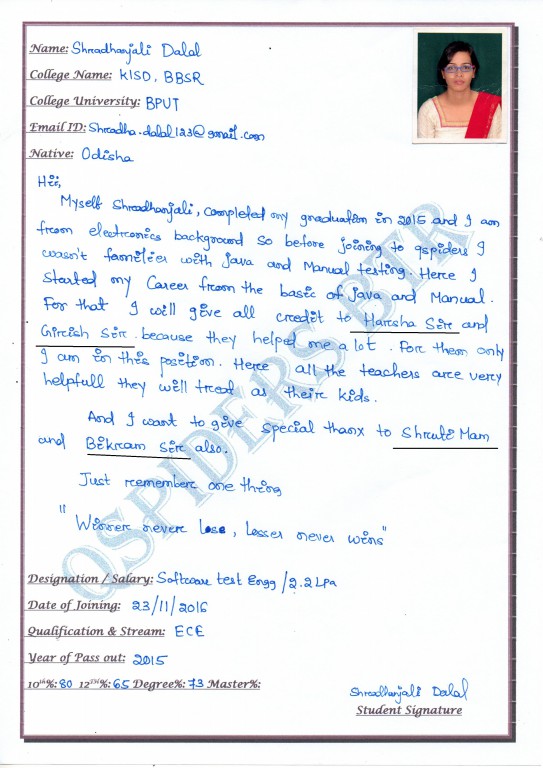 Name: Shradhanjali Dalal
College Name: KISD, BBSR
College University: BPUT
Email ID: Shradha.dalal123@gmail.com
Native: Odisha
Hii,
Myself Shradhanjali, completed my graduation in 2015 and I am
from electronics background so before joining to qspiders I
wasn't familier with java and Manual testing. Here I
Started my Career from the basic of java and Manual.
For that I will give all credit to Harsha Sir and
Girish Sir. because they helped me a lot. For them only
I am in this position. Here all the teachers are very
helpfull they will treat as their kids.
And I want to give special thanx to Shruti Mam
and Bikram Sir also.
Just remember one thing
" Winner never lose, losser never wins"
Designation / Salary: Software test Engg / 2.2 Lpa
Date of Joining: 23/11/2016
Qualification & Stream: ECE
Year of Pass out: 2015
10th%: 80 12TH%: 65 Degree%: 73 Master%:
Shradhanjali Dalal
Student Signature
QSPIDERS BTR